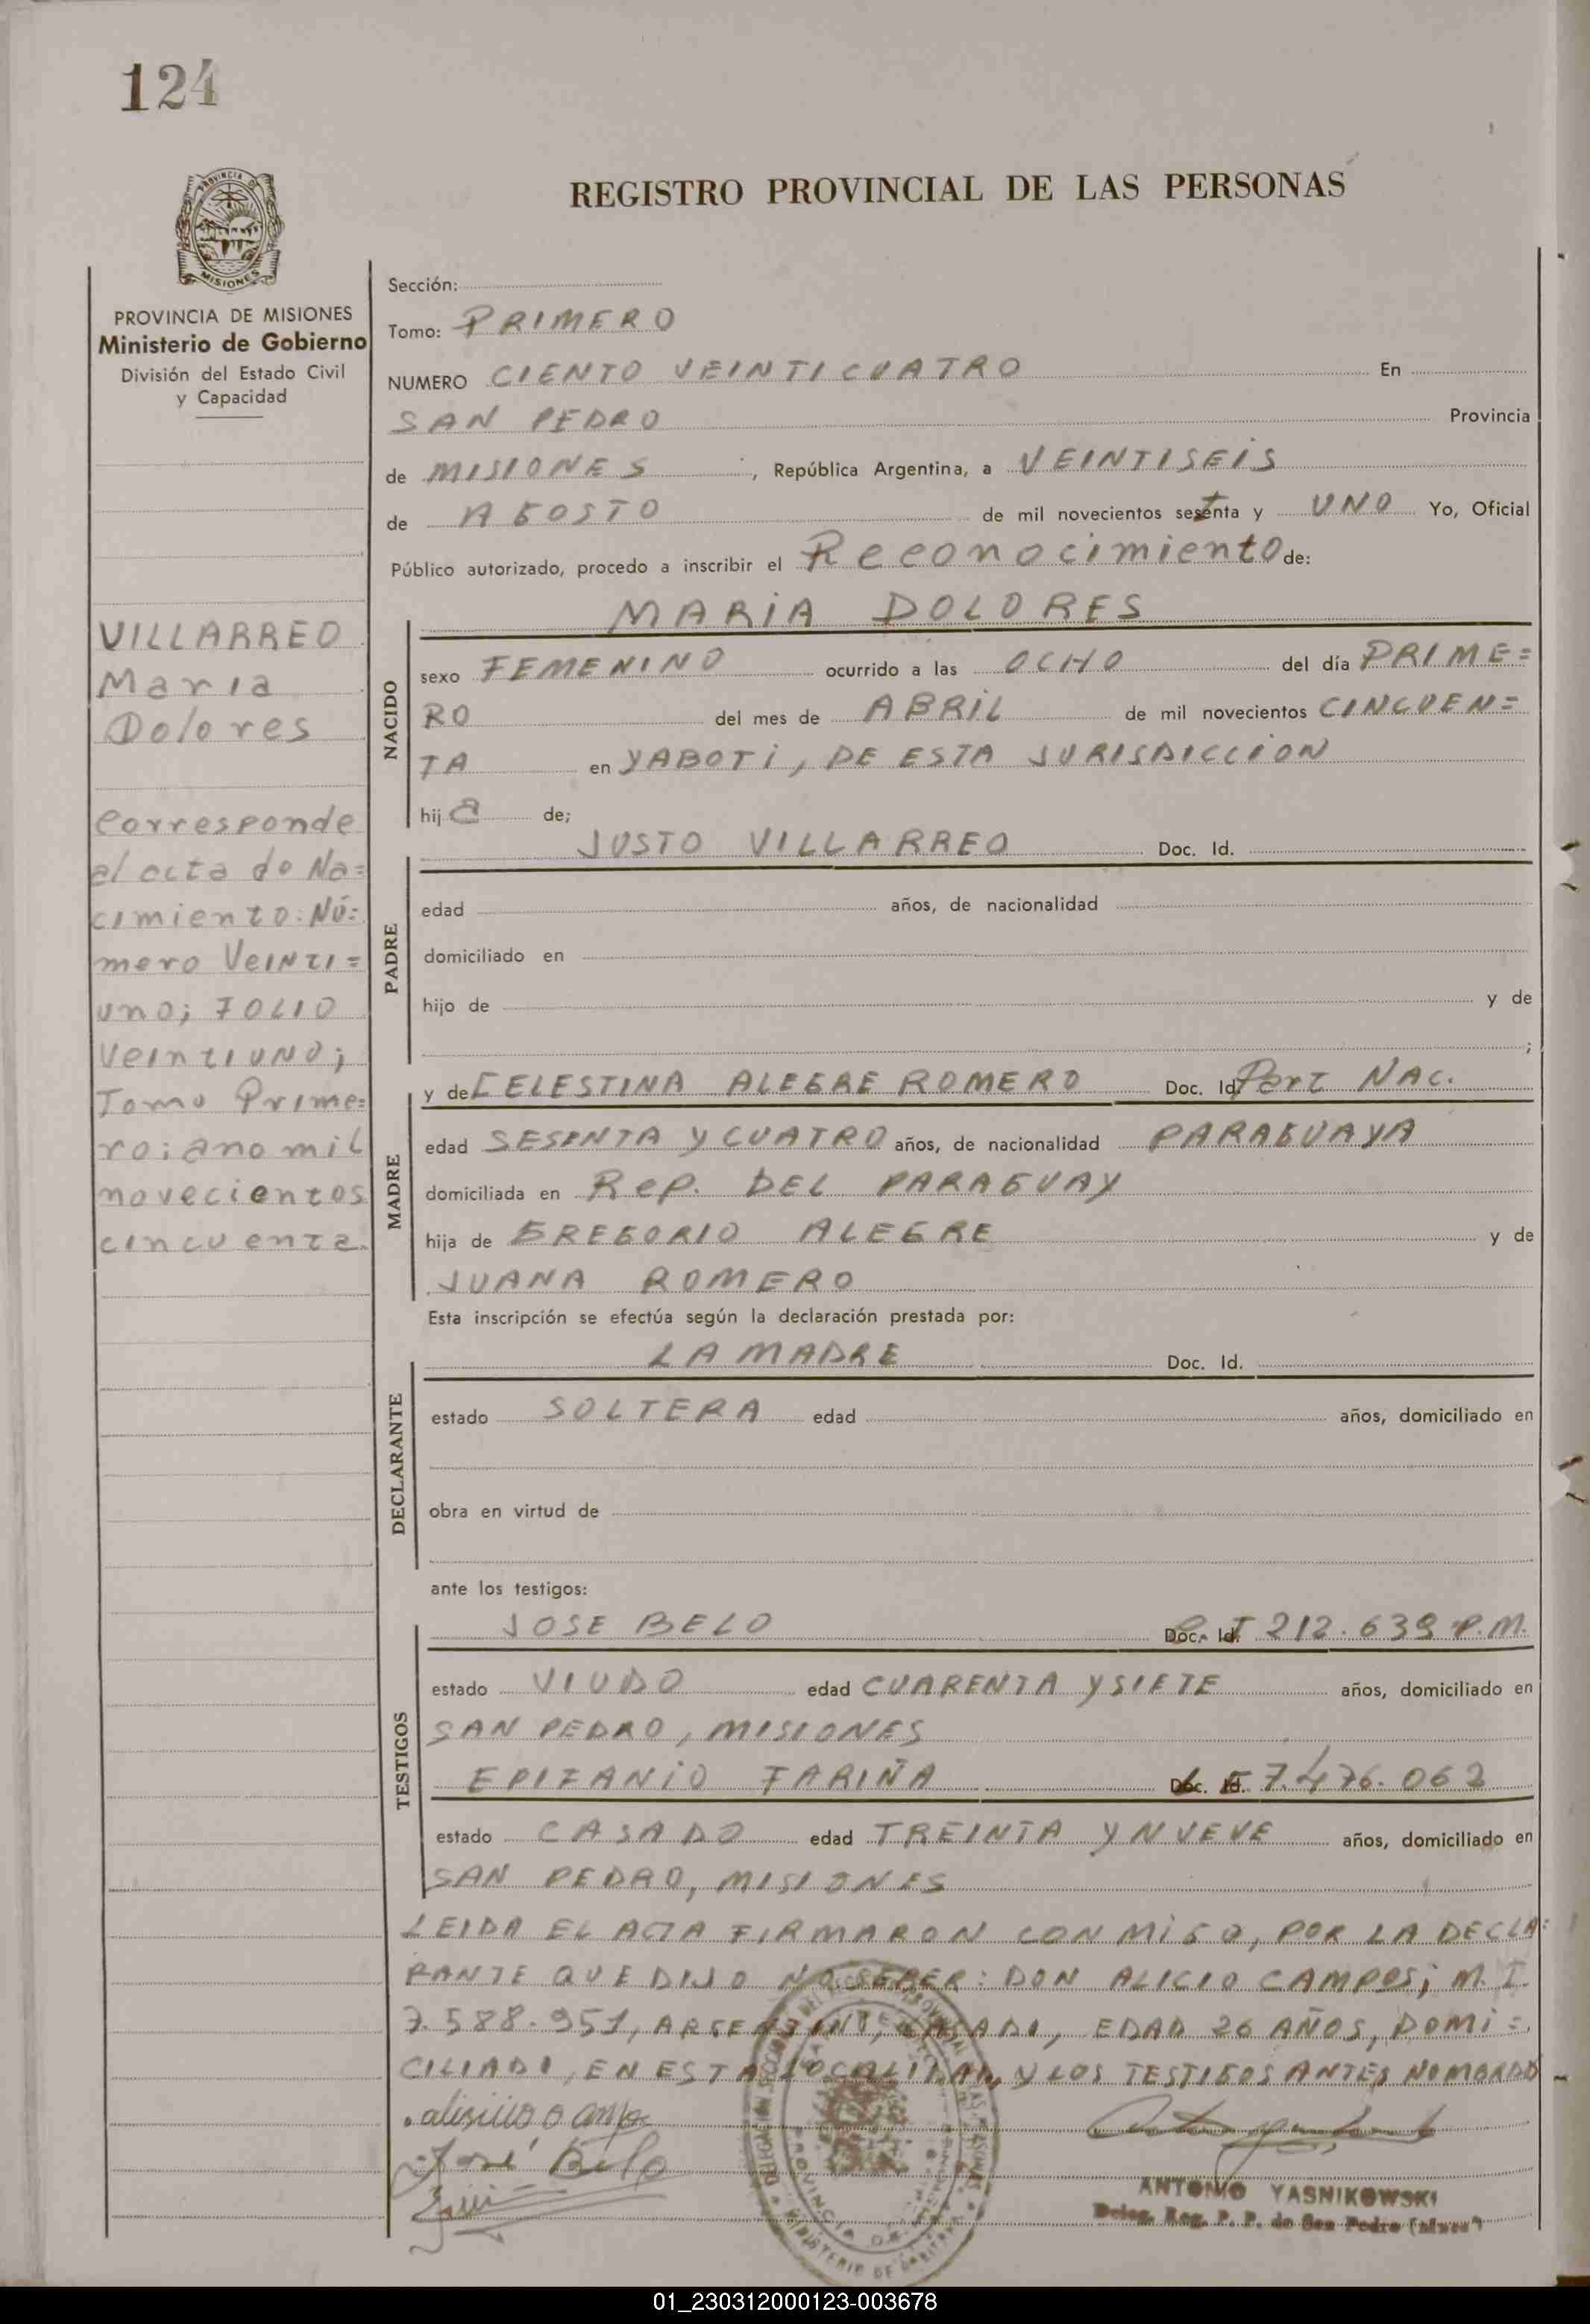 124
REGISTRO PROVINCIAL DE LAS PERSONAS
PROVINCIA DE
MISIONES
PROVINCIA DE MISIONES
Ministerio de Gobierno
División del Estado Civil
y Capacidad
VILLARREO
Maria
Dolores
Corresponde
al acta de Na=
cimiento: Nú=
mero Veinti=
uno; Folio
Veintiuno;
Tomo Prime=
ro; ano mil
novecientos
cincuenta.
Sección:
Tomo: PRIMERO
NUMERO CIENTO VEINTICUATRO En
SAN PEDRO Provincia
de MISIONES, República Argentina, a VEINTISEIS
de AGOSTO de mil novecientos setenta y UNO Yo, Oficial
Público autorizado, procedo a inscribir el Reconocimiento de:
MARIA DOLORES
NACIDO
sexo FEMENINO ocurrido a las OCHO del día PRIME=
RO del mes de ABRIL de mil novecientos CINCUEN=
TA en YABOTI, DE ESTA JURISDICCION
hija de;
JUSTO VILLARREO Doc. Id.
PADRE
edad años, de nacionalidad
domiciliado en
hijo de y de
;
y de CELESTINA ALEGRE ROMERO Doc. Id. Part NAC.
MADRE
edad SESENTA Y CUATRO años, de nacionalidad PARAGUAYA
domiciliada en Rep. DEL PARAGUAY
hija de GREGORIO ALEGRE y de
JUANA ROMERO
Esta inscripción se efectúa según la declaración prestada por:
LA MADRE Doc. Id.
DECLARANTE
estado SOLTERA edad años, domiciliado en
obra en virtud de
ante los testigos:
JOSE BELO Doc. Id. C.I 212.639 P.M.
TESTIGOS
estado VIUDO edad CUARENTA Y SIETE años, domiciliado en
SAN PEDRO, MISIONES
EPIFANIO FARIÑA Doc. Id. L E 7.476.062
estado CASADO edad TREINTA Y NUEVE años, domiciliado en
SAN PEDRO, MISIONES
LEIDA EL ACTA FIRMARON CON MIGO, POR LA DECLA=
RANTE QUE DIJO NO SEBER: DON ALICIO CAMPOS; M. I.
7.588.951, ARGENTINO, CASADO, EDAD 26 AÑOS, DOMI=
CILIADO, EN ESTA LOCALIDAD, Y LOS TESTIGOS ANTES NOMBRADO
José Belo
ANTONIO YASNIKOWSKI
Deleg. Reg. P. P. de San Pedro (Mnes)
01_230312000123-003678